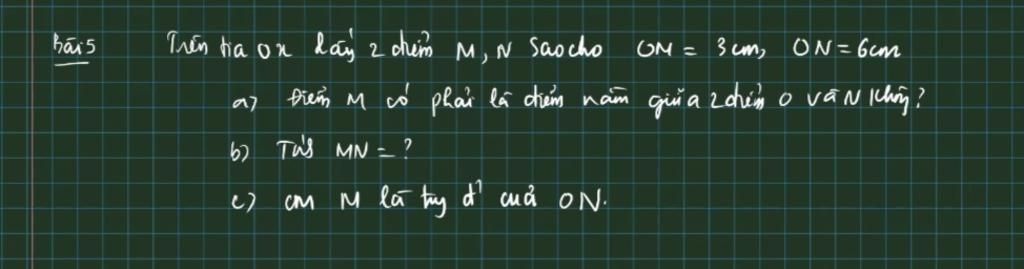 Bài 5 Trên tia Ox lấy 2 điểm M, N sao cho OM = 3cm, ON = 6cm
a) Điểm M có phải là điểm nằm giữa 2 điểm O và N không?
b) Tính MN = ?
c) CM M là tr đ' của ON.